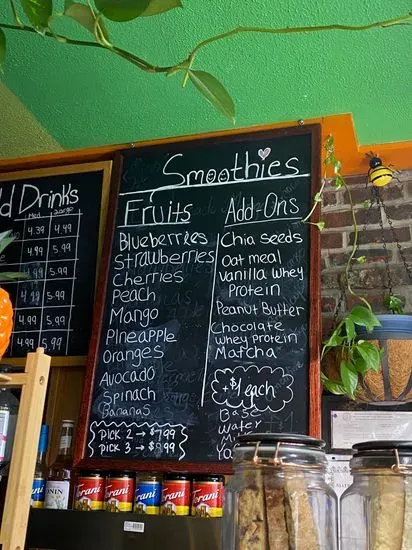 Smoothies
Fruits
Blueberries
Strawberries
Cherries
Peach
Mango
Pineapple
Oranges
Avocado
Spinach
Bananas
PICK 2 → $7.99
PICK 3 → $8.99
Add-Ons
Chia seeds
Oat meal
Vanilla whey
Protein
Peanut Butter
Chocolate
whey protein
Matcha
+$1 each
Base
Water
Drinks
Med Large
4.39 4.49
4.99 5.99
4.99 5.99
4.99 5.99
4.99 5.99
4.99 5.99
Torani
Torani
Torani
Torani
Torani
MONIN